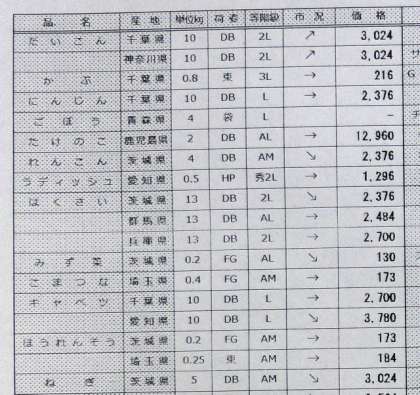 品名 産地 単位kg 荷姿 等階級 市況 価格
だいこん 千葉県 10 DB 2L ↗ 3,024
神奈川県 10 DB 2L ↗ 3,024 サ
かぶ 千葉県 0.8 束 3L → 216 G
にんじん 千葉県 10 DB L → 2,376
ごぼう 青森県 4 袋 L － チ
たけのこ 鹿児島県 2 DB AL → 12,960
れんこん 茨城県 4 DB AM ↘ 2,376
ラディッシュ 愛知県 0.5 HP 秀2L → 1,296
はくさい 茨城県 13 DB 2L ↘ 2,376
群馬県 13 DB AL → 2,484
兵庫県 13 DB 2L → 2,700
みず菜 茨城県 0.2 FG AL ↘ 130
こまつな 埼玉県 0.4 FG AM → 173
キャベツ 千葉県 10 DB L → 2,700
愛知県 10 DB L ↘ 3,780
ほうれんそう 茨城県 0.2 FG AM → 173
埼玉県 0.25 束 AM → 184
ねぎ 茨城県 5 DB AM ↘ 3,024